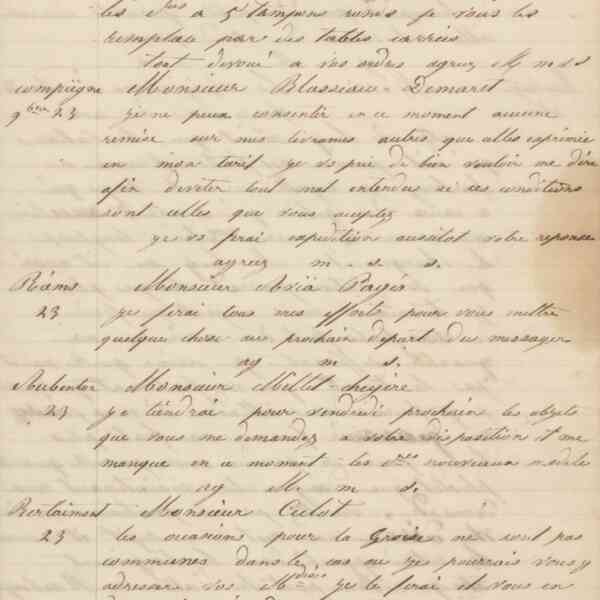 les
remplace par des tables carrées
tout dévoué a vos ordres agréez M m s s
Compiègne Monsieur Blassiau-Demaret
9bre 23 je ne peux consentir en ce moment aucune
remise sur mes livrames autres que celles exprimée
en mon tarif je vs prie de bien vouloir me dire
afin d'eviter tout mal entendus si ces conditions
sont celles que vous acceptez
je vs ferai expedition aussitot votre reponse
agreez m . s . s.
Reims Monsieur Pagés
23 je ferai tous mes efforts pour vous mettre
quelque chose au prochain depart du messager
ag m s.
Aubenton Monsieur Millet-
23 je tiendrai pour vendredi prochain les objets
que vous me demandez a votre disposition il me
manque en ce moment les nouveaux modele
ag M. m s.
Monsieur Culot
23 les occasions pour la Groise ne sont pas
communes dans le cas ou je pourrais vous y
adresser vos Mdises je le ferai et vous en